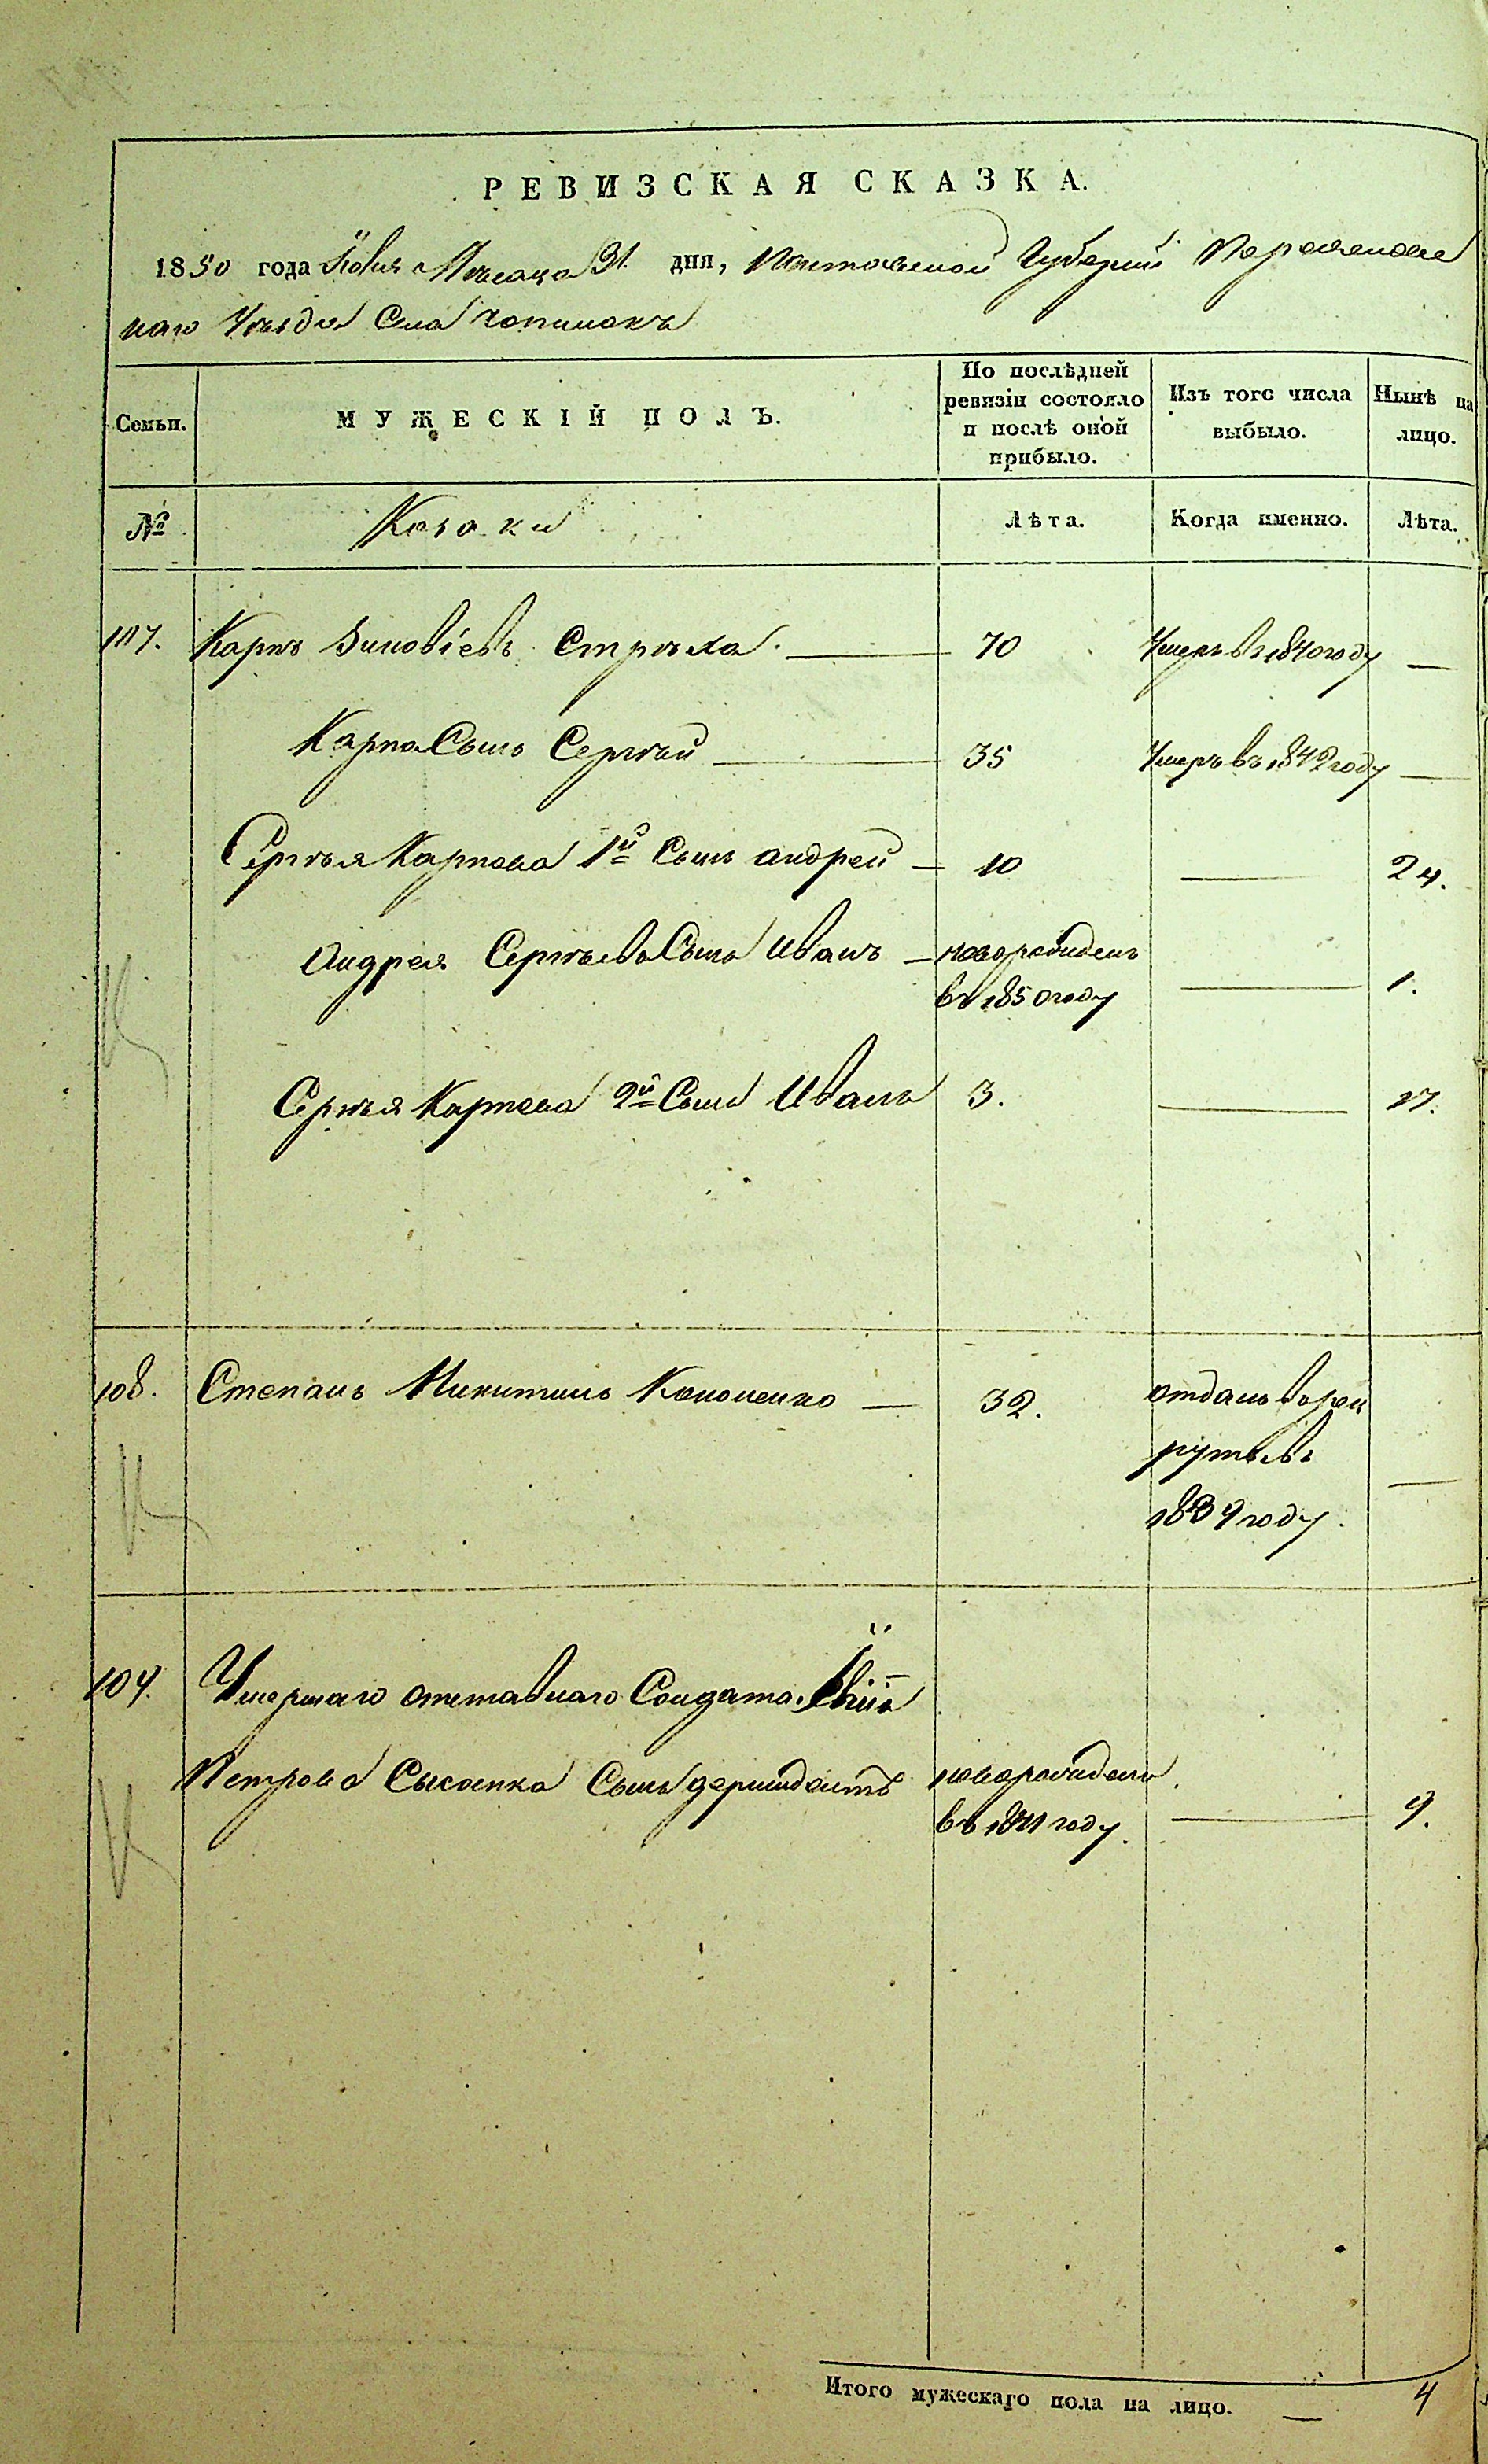 РЕВИЗСКАЯ СКАЗКА.
1850 года Мѣсяца 31 дня, Полтавской Губерніи Переяславс
каго Уѣзда Села
Семьи.
МУЖЕСКІЙ ПОЛЪ.
По послѣдней
ревизіи состояло
и послѣ оной
прибыло.
Изъ того числа
выбыло.
Нынѣ на
лицо.
№
Козаки
Лѣта.
Когда именно.
Лѣта.
107. Карпъ Зиновіевъ Стрѣха. 70 Умеръ въ 1840 году —
Карпа Сынъ Сергѣй 35 Умеръ въ 1842 году —
Сергѣя Карпова 1й Сынъ андрей — 10 — 24.
Андрея Сергѣева Сынъ Иванъ — новорожденъ
въ 1850 году — 1.
Сергѣя Карпова 2й Сынъ Иванъ 3. — 17.
108. Степанъ Никитинъ Кононенко — 32. отданъ в рек
руты въ
1839 году. —
109. Умершаго отставнаго Солдата
Петрова Сынъ новорожденъ
въ 1841 году. — 9.
Итого мужескаго пола на лицо. — 4